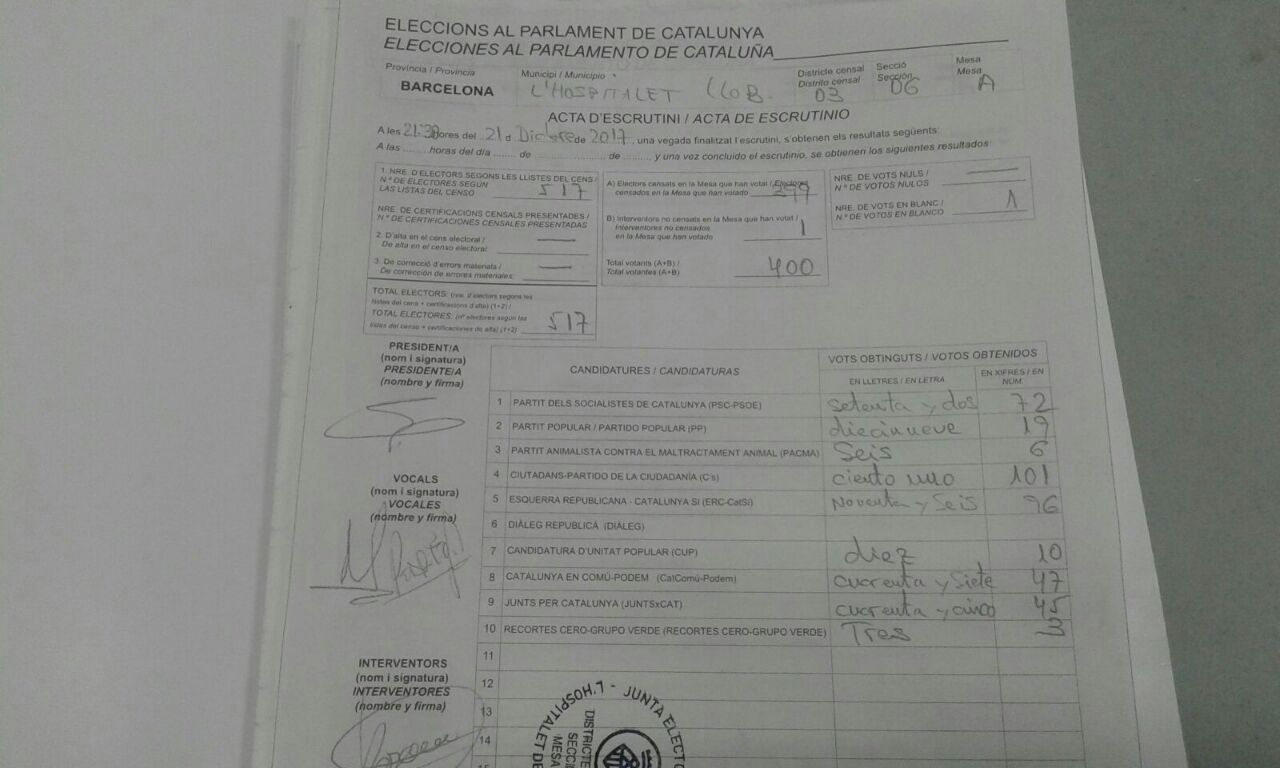 ELECCIONS AL PARLAMENT DE CATALUNYA
ELECCIONES AL PARLAMENTO DE CATALUÑA
Província / Provincia
BARCELONA
Municipi / Municipio
L'HOSPITALET LLOB.
Districte censal
Distrito censal
03
Secció
Sección
06
Mesa
Mesa
A
ACTA D'ESCRUTINI / ACTA DE ESCRUTINIO
A les 21:30 hores del 21 d Dicbre de 2017, una vegada finalitzat l'escrutini, s'obtenen els resultats següents:
A las ........ horas del día ....... de ........................ de ........, y una vez concluido el escrutinio, se obtienen los siguientes resultados:
1. NRE. D'ELECTORS SEGONS LES LLISTES DEL CENS /
N.º DE ELECTORES SEGÚN
LAS LISTAS DEL CENSO 517
NRE. DE CERTIFICACIONS CENSALS PRESENTADES /
N.º DE CERTIFICACIONES CENSALES PRESENTADAS
2. D'alta en el cens electoral /
De alta en el censo electoral: —
3. De correcció d'errors materials /
De corrección de errores materiales: —
TOTAL ELECTORS: (nre. d'electors segons les
llistes del cens + certificacions d'alta) (1+2) /
TOTAL ELECTORES: (nº electores según las
listas del censo + certificaciones de alta) (1+2) 517
A) Electors censats en la Mesa que han votat / Electores
censados en la Mesa que han votado 399
B) Interventors no censats en la Mesa que han votat /
Interventores no censados
en la Mesa que han votado 1
Total votants (A+B) /
Total votantes (A+B) 400
NRE. DE VOTS NULS /
N.º DE VOTOS NULOS —
NRE. DE VOTS EN BLANC /
N.º DE VOTOS EN BLANCO 1
PRESIDENT/A
(nom i signatura)
PRESIDENTE/A
(nombre y firma)
VOCALS
(nom i signatura)
VOCALES
(nombre y firma)
INTERVENTORS
(nom i signatura)
INTERVENTORES
(nombre y firma)
CANDIDATURES / CANDIDATURAS
VOTS OBTINGUTS / VOTOS OBTENIDOS
EN LLETRES / EN LETRA
EN XIFRES / EN NUM
1 PARTIT DELS SOCIALISTES DE CATALUNYA (PSC-PSOE) setenta y dos 72
2 PARTIT POPULAR / PARTIDO POPULAR (PP) diecinueve 19
3 PARTIT ANIMALISTA CONTRA EL MALTRACTAMENT ANIMAL (PACMA) Seis 6
4 CIUTADANS-PARTIDO DE LA CIUDADANÍA (C's) ciento uno 101
5 ESQUERRA REPUBLICANA - CATALUNYA SÍ (ERC-CatSí) Noventa y Seis 96
6 DIÀLEG REPUBLICÀ (DIÀLEG)
7 CANDIDATURA D'UNITAT POPULAR (CUP) diez 10
8 CATALUNYA EN COMÚ-PODEM (CatComú-Podem) cuarenta y Siete 47
9 JUNTS PER CATALUNYA (JUNTSxCAT) cuarenta y cinco 45
10 RECORTES CERO-GRUPO VERDE (RECORTES CERO-GRUPO VERDE) Tres 3
11
12
13
14
15
L'HOSPITALET DE
JUNTA ELECTO
DISTRICTE
SECCI
MESA